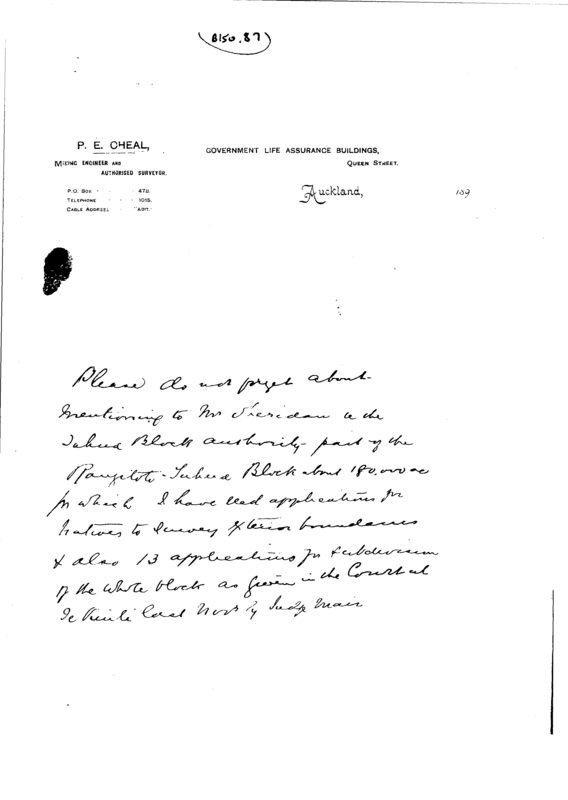 B150.87
P. E. CHEAL,
MINING ENGINEER AND
AUTHORISED SURVEYOR.
GOVERNMENT LIFE ASSURANCE BUILDINGS,
QUEEN STREET.
P.O. BOX 472.
TELEPHONE 1015.
CABLE ADDRESS "ADIT."
Auckland, 189
Please do not forget about
mentioning to Mr Sheridan re the
Tuhua Block authority part of the
Rangitoto-Tuhua Block about 180.000 ac
for which I have had applications for
Natives to Survey Exterior boundaries
& also 13 applications for subdivision
of the whole block as given in the Court at
Te Kuiti last Novr by Judge Mair